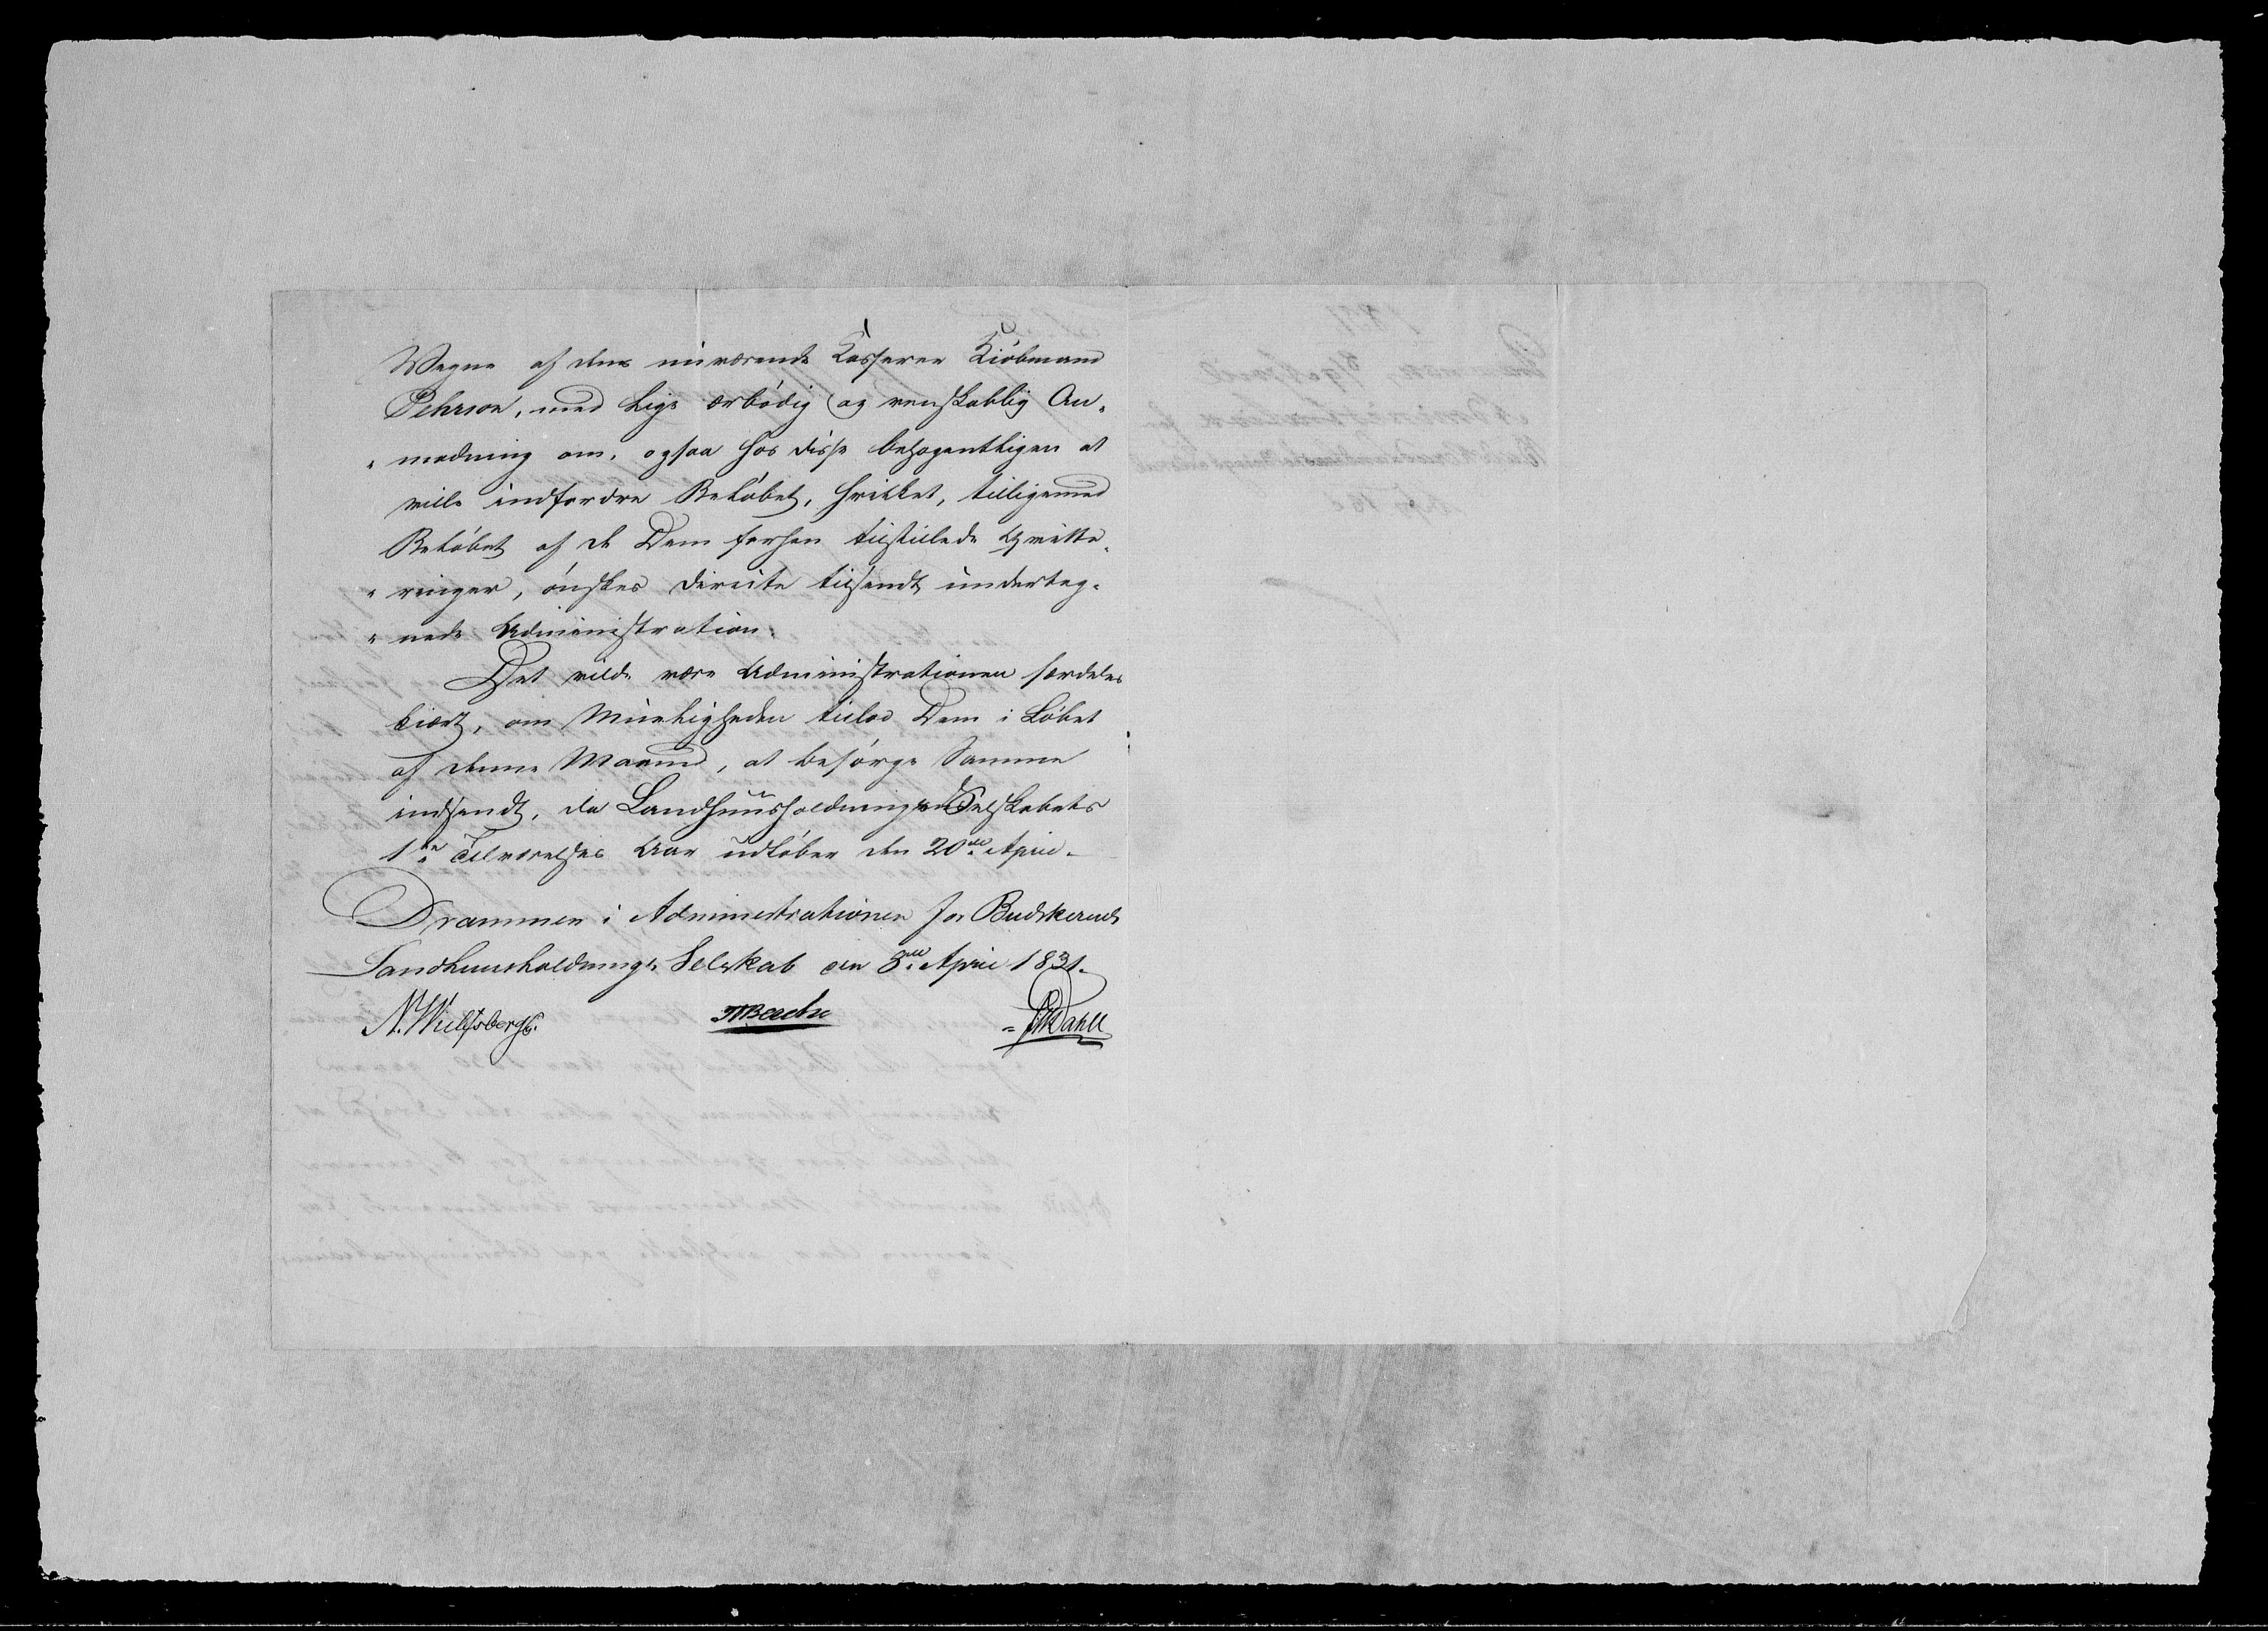 Wegne af dens nuværende Kasserer Kiöbmand
Pehrson, med lige ærbödig og venskablig An„
„modning om, ogsaa hos disse behagentligen at
ville indfordre Belöbet, hvilket, tilligemed
Belöbet af de Dem forhen tilstillede Qvitte„
„ringer, önskes directe tilsendt underteg„
„nede Administration.
Det vilde være Administrationen særdeles
kiært, om Mueligheden tillod Dem i Löbet
af denne Maaned, at besörge Samme
indsendt, da Landhuusholdnings Selskabets
1ste Tilværelses Aar udlöber den 20de April.
Drammen i Administrationen for Budskeruds
Landhuusholdnings Selskab den 8de April 1831.
N. Wulfsberg.
Bache
Dahll